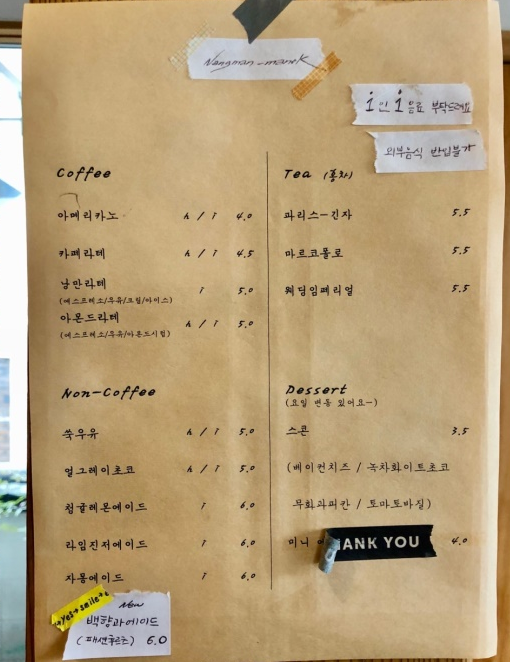 Nangman-manok
1인 1음료 부탁드려요
외부음식 반입불가
Coffee
아메리카노 h / i 4.0
카페라떼 h / i 4.5
낭만라떼 i 5.0
(에스프레소/우유/크림/아이스)
아몬드라떼 h / i 5.0
(에스프레소/우유/아몬드시럽)
Non-Coffee
쑥우유 h / i 5.0
얼그레이초코 h / i 5.0
청귤레몬에이드 i 6.0
라임진저에이드 i 6.0
자몽에이드 i 6.0
*yes*smile*
New
백향과에이드
(패션후르츠) 6.0
Tea (홍차)
파리스-긴자 5.5
마르코폴로 5.5
웨딩임페리얼 5.5
Dessert
(요일 변동 있어요~)
스콘 3.5
(베이컨치즈 / 녹차화이트초코
무화과피칸 / 토마토바질)
미니 4.0
ANK YOU